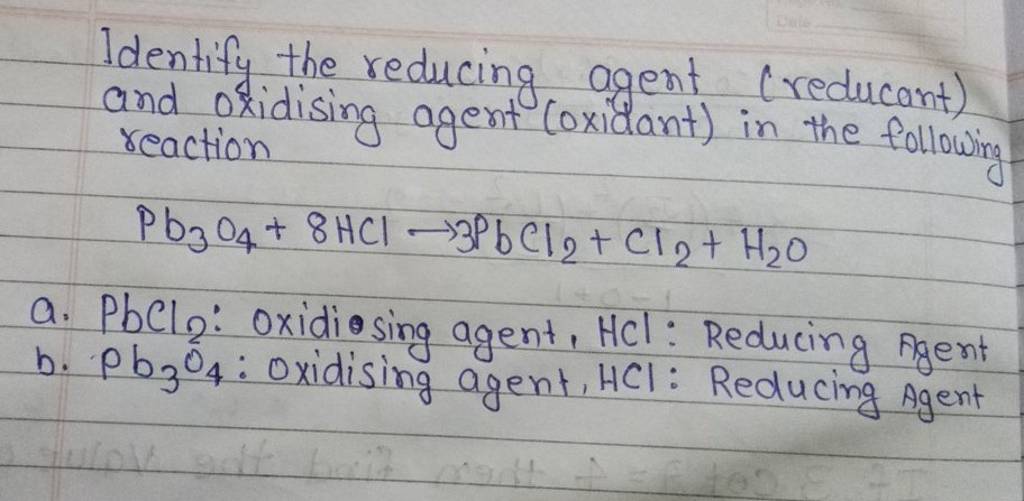 Identify the reducing agent (reducant)
and oxidising agent (oxidant) in the following
reaction
Pb3O4 + 8HCl → 3PbCl2 + Cl2 + H2O
a. PbCl2: oxidiosing agent, HCl: Reducing Agent
b. Pb3O4: oxidising agent, HCl: Reducing Agent